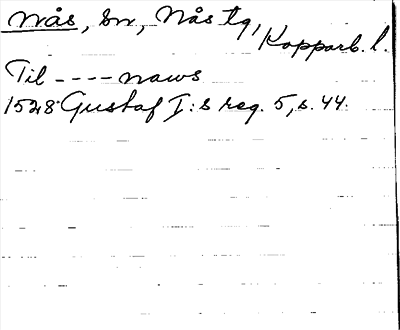 Nås, sn, Nås tg, Kopparb. l.
Til ---- naws
1528 Gustaf I:s reg. 5, s. 44.